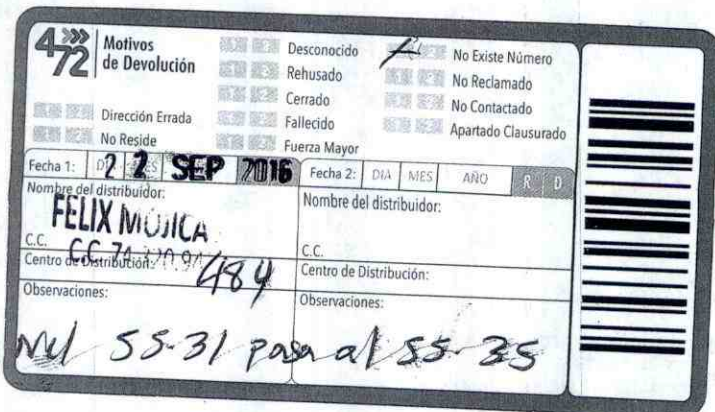 472 Motivos
de Devolución
Desconocido
Rehusado
Cerrado
Fallecido
Fuerza Mayor
No Existe Número
No Reclamado
No Contactado
Apartado Clausurado
Dirección Errada
No Reside
Fecha 1: 22 SEP 2016
Fecha 2: DIA MES AÑO R D
Nombre del distribuidor:
FELIX MOJICA
C.C. C.C.
Centro de Distribución: 484
Observaciones:
55-31 pasa al 55-35
Nombre del distribuidor:
C.C.
Centro de Distribución:
Observaciones: